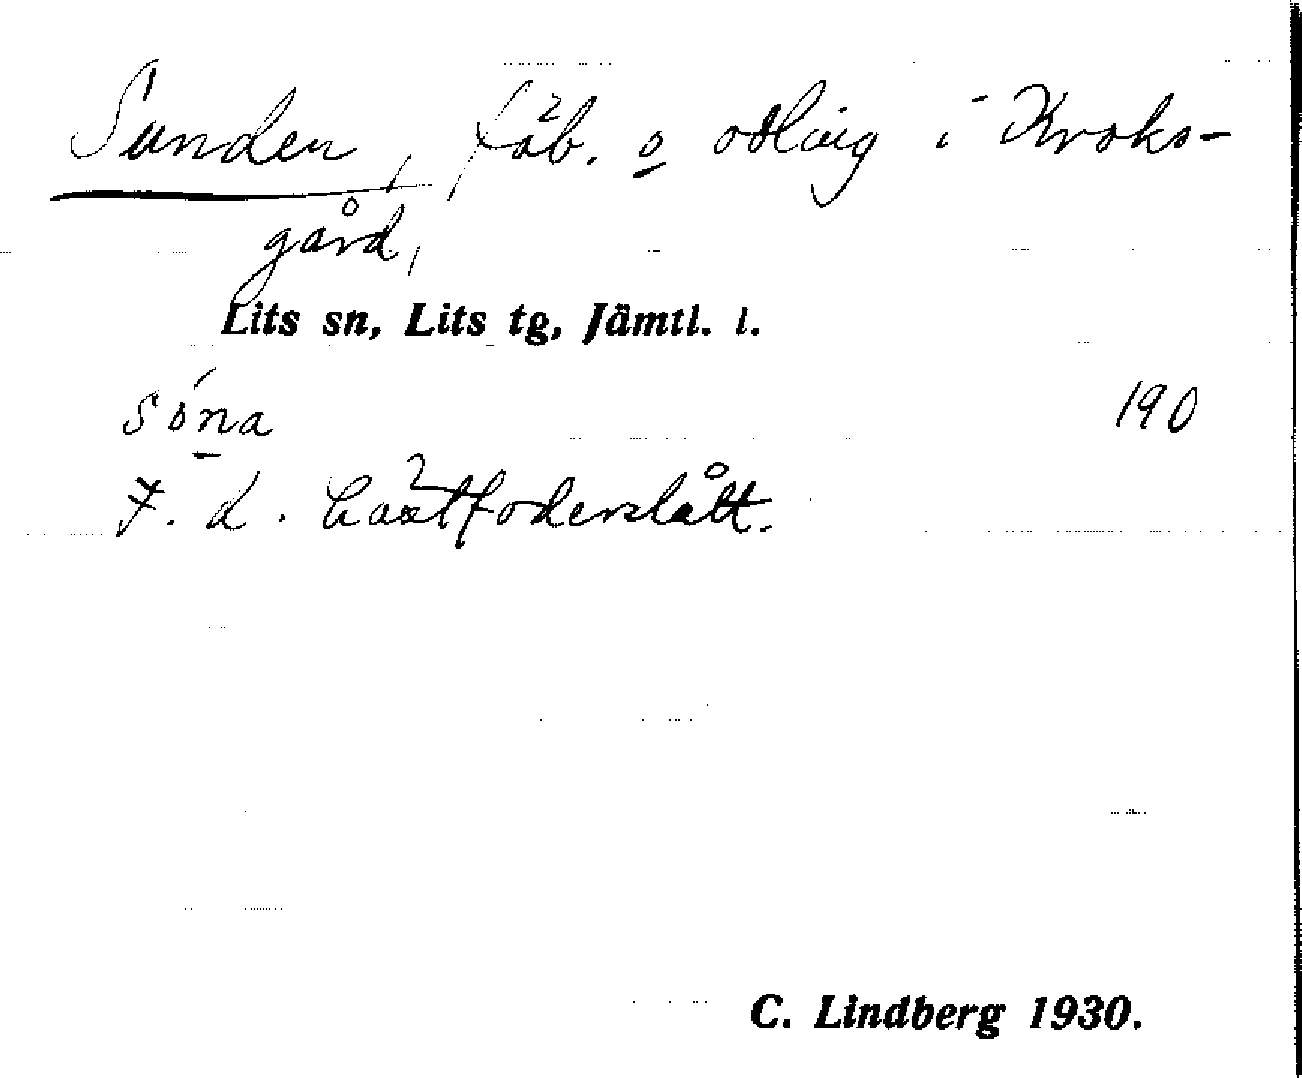 Sunden, fäb. o odling i Kroks-
gård,
Lits sn, Lits tg, Jämtl. l.
sóna 190
F. d. hästfoderslått.
C. Lindberg 1930.